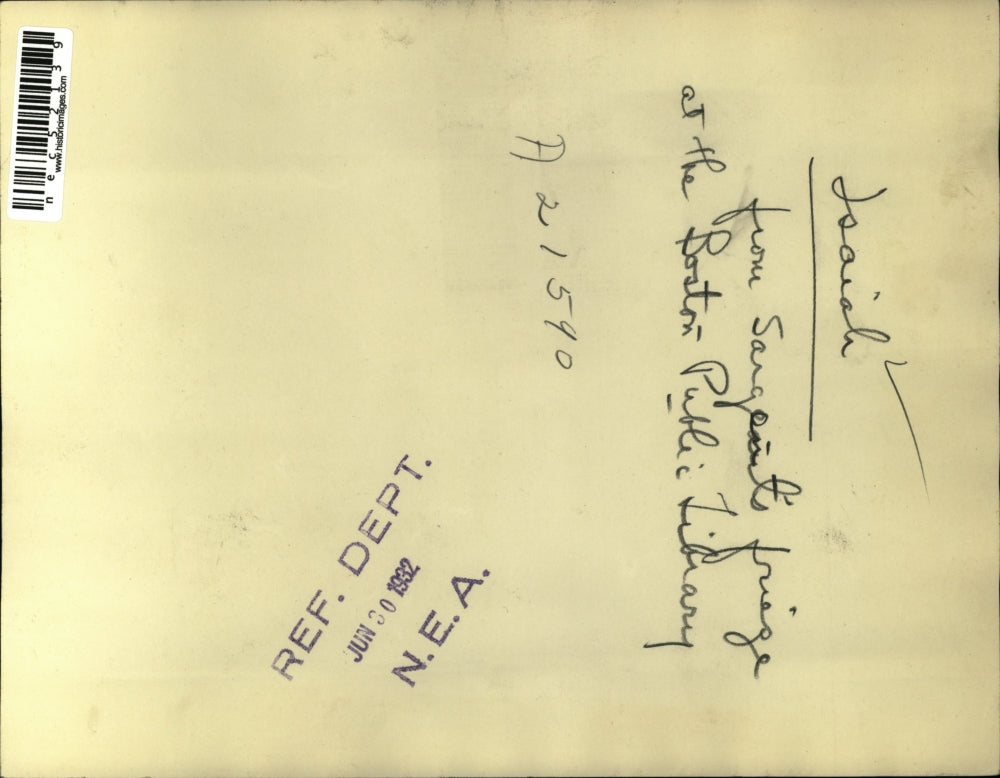 Isaiah
from Sargent's frieze
at the Boston Public Library
A 21590
REF. DEPT.
JUN 30 1932
N.E.A.
nec52139
www.historicimages.com